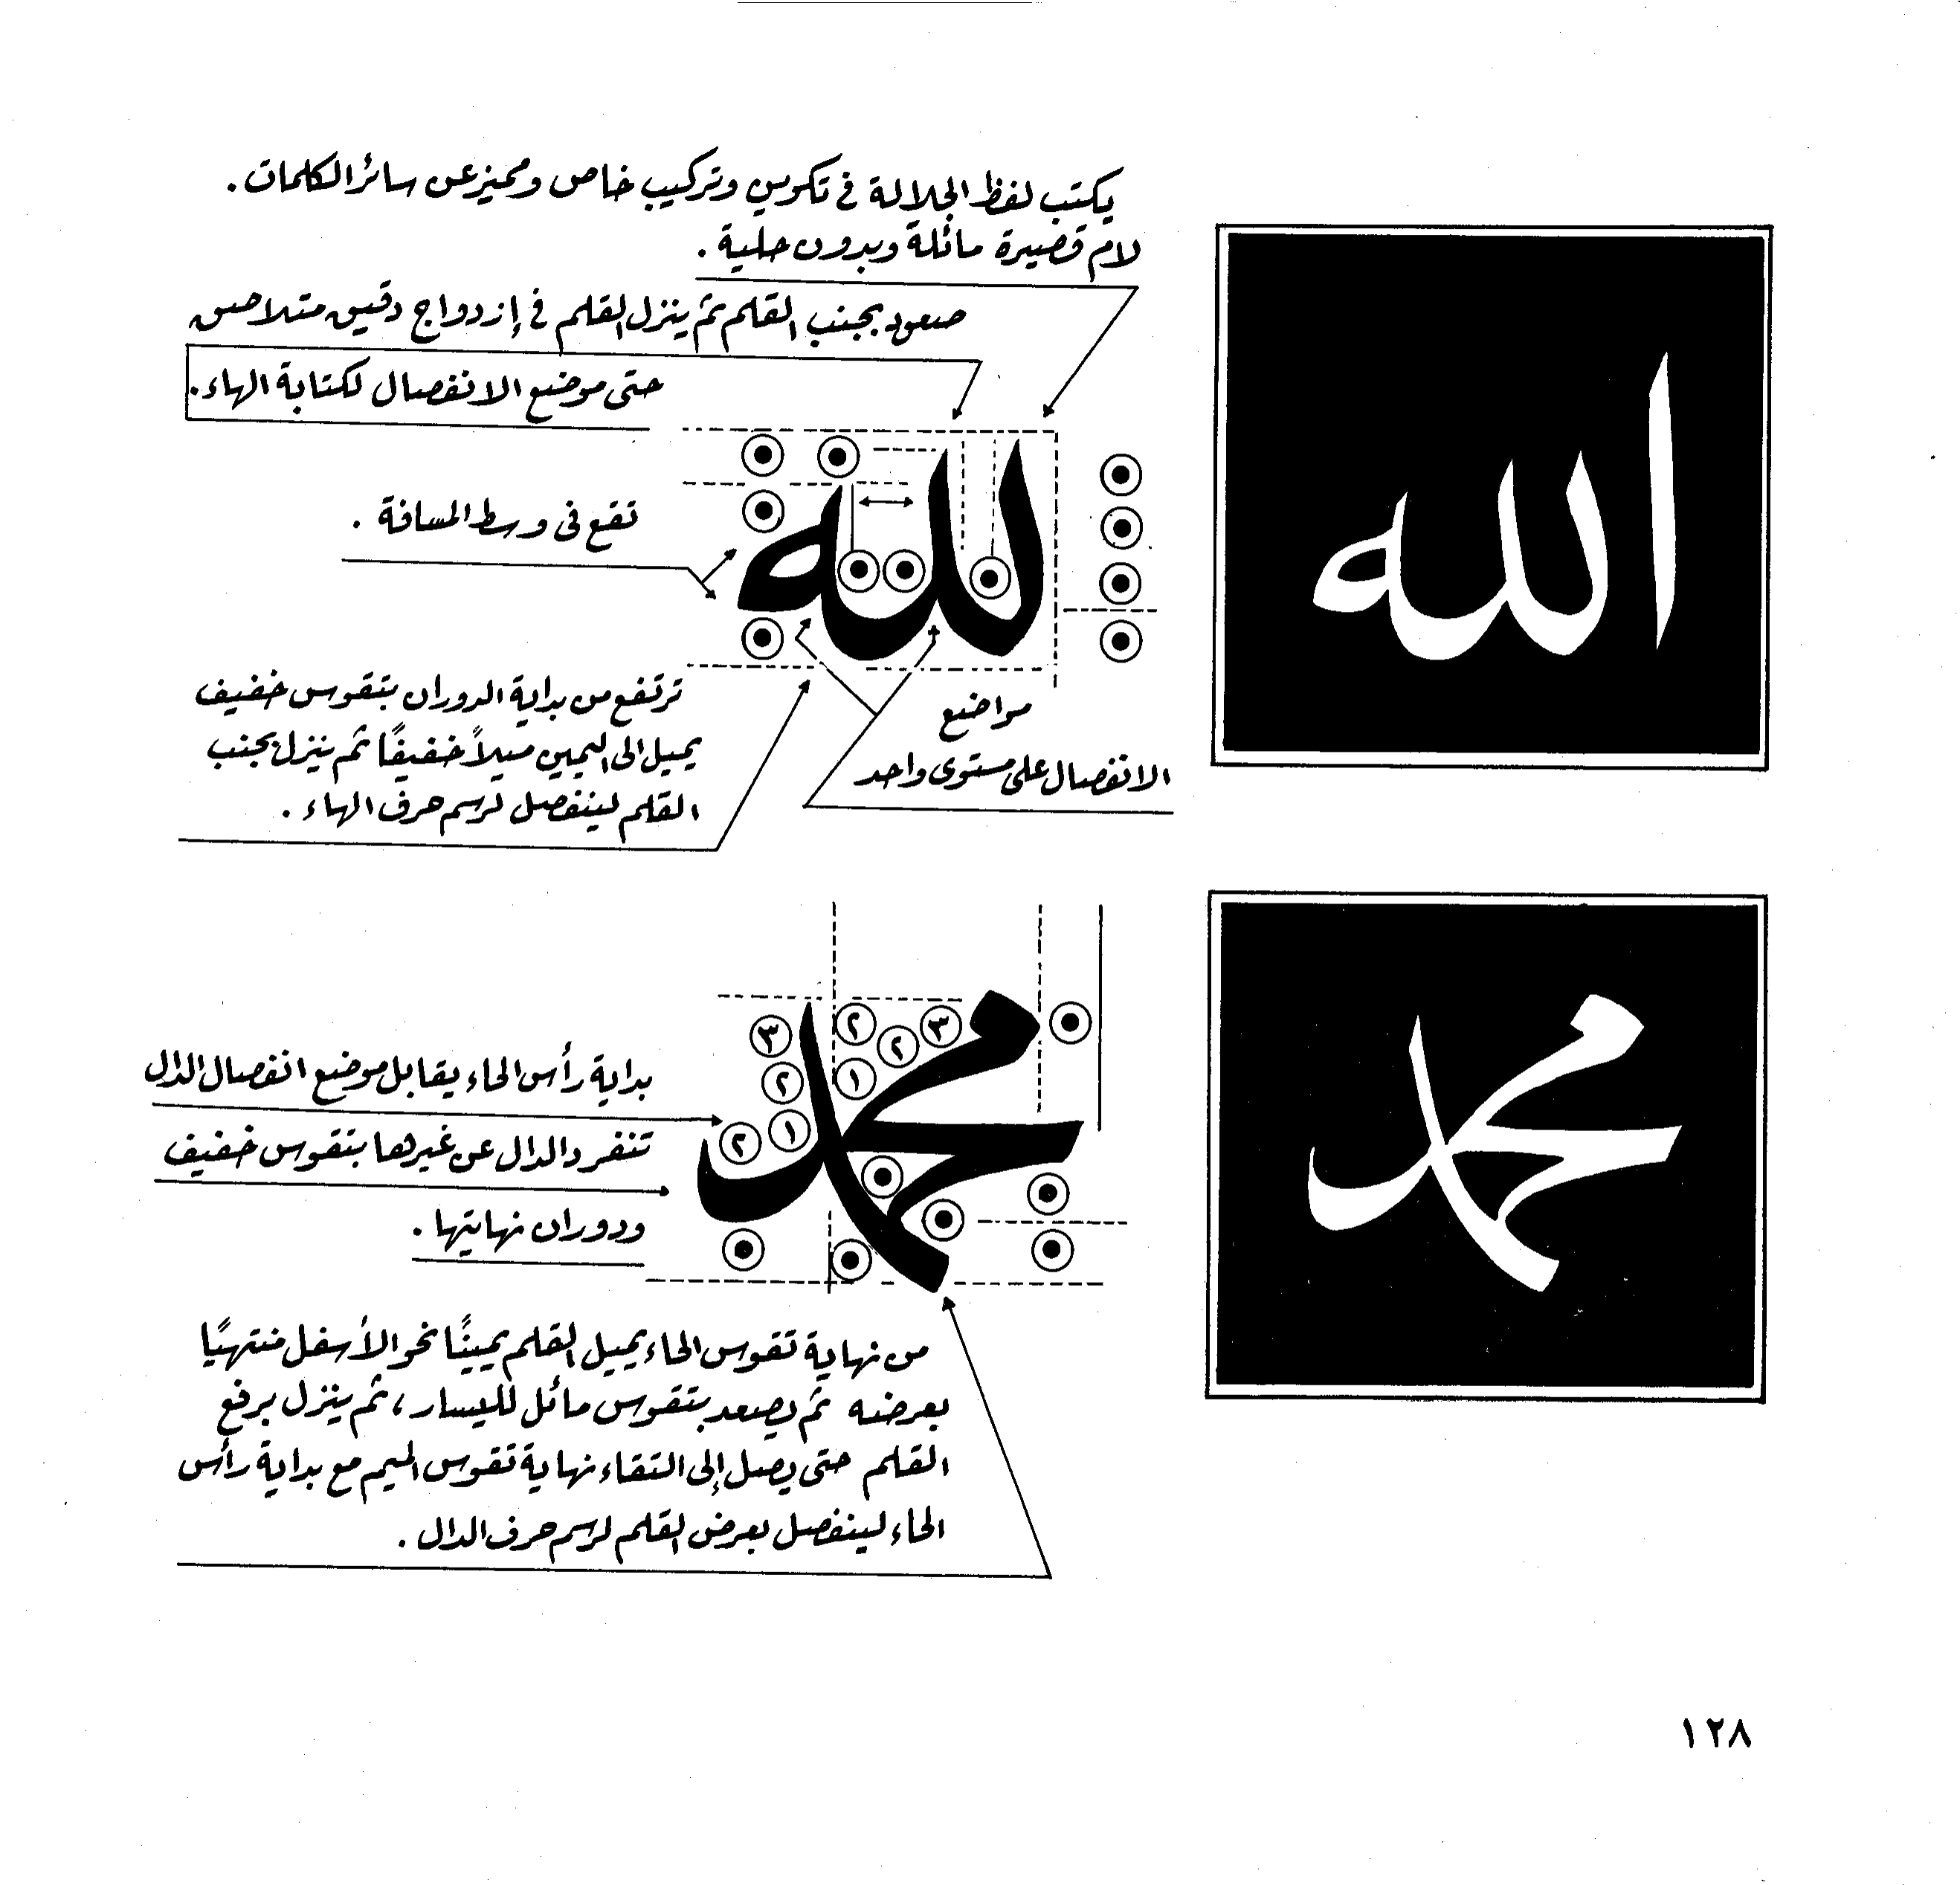 يكتب لفظ الجلالة في تكوين وتركيب خاص ومميز عن سائر الكلمات .
لام قصيرة مائلة وبدون حلية .
صعود بجنب القلم ثم ينزل القلم في إزدواج دقيق متلاصق
حتى موضع الانفصال لكتابة الهاء .
الله
لله
تقع في وسط المسافة .
مواضع
الانفصال على مستوى واحد
ترتفع من بداية الدوران بتقوس خفيف
يميل الى اليمين ميلاً خفيفًا ثم ينزل بجنب
القلم لينفصل لرسم حرف الهاء .
محمد
محمد
٣ ٢ ٢ ٣
٢ ١
١ ٢
بداية رأس الحاء يقابل موضع انفصال الدال
تنفرد الدال عن غيرها بتقوس خفيف
ودوران نهايتها .
من نهاية تقوس الحاء يميل القلم يمينًا نحو الأسفل منتهيًا
بعرضه ثم يصعد بتقوس مائل لليسار ، ثم ينزل برفع
القلم حتى يصل إلى التقاء نهاية تقوس الميم مع بداية رأس
الحاء لينفصل بعرض القلم لرسم حرف الدال .
١٢٨